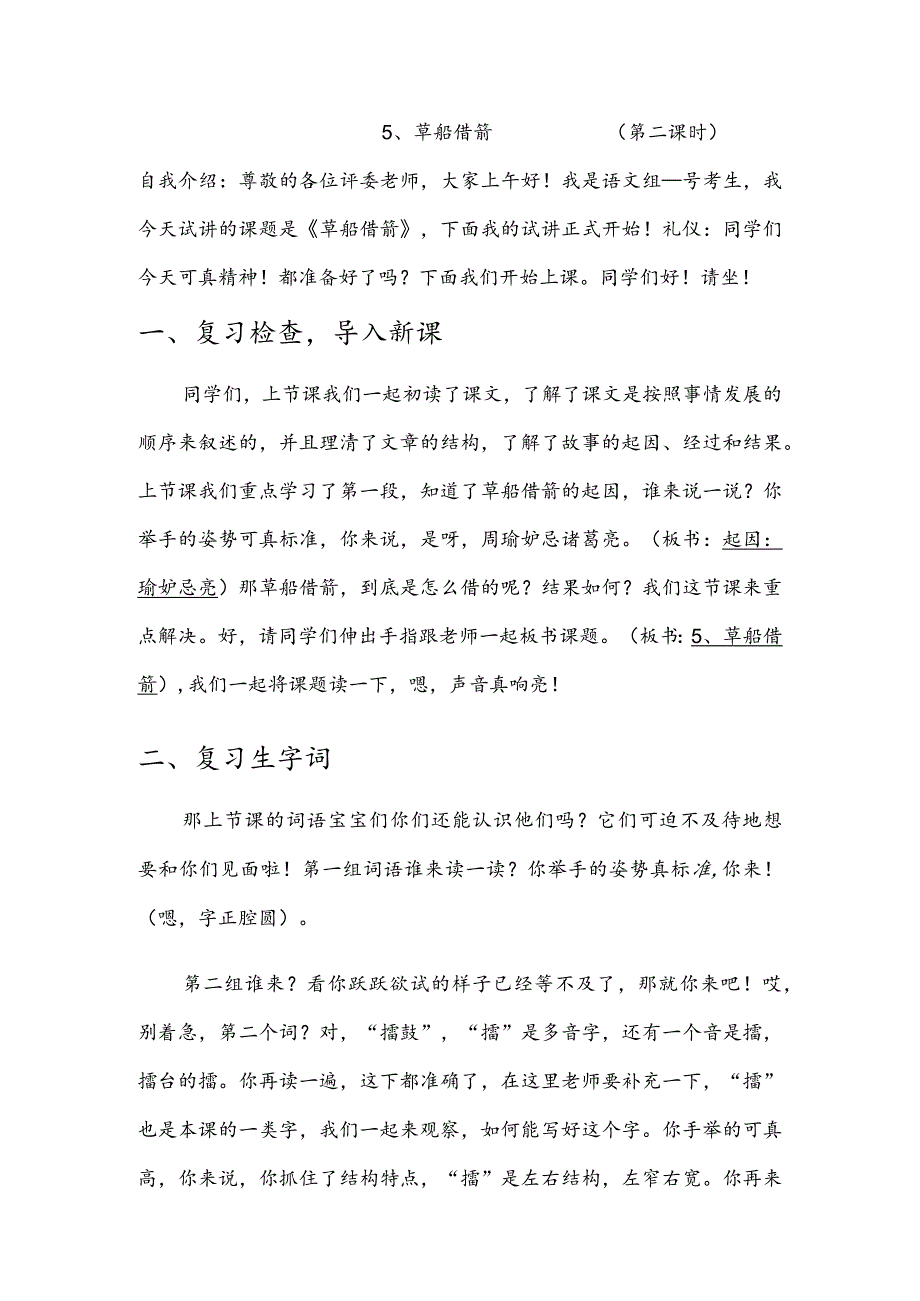 5、草船借箭 （第二课时）
自我介绍：尊敬的各位评委老师，大家上午好！我是语文组—号考生，我
今天试讲的课题是《草船借箭》，下面我的试讲正式开始！礼仪：同学们
今天可真精神！都准备好了吗？下面我们开始上课。同学们好！请坐！
一、复习检查，导入新课
同学们，上节课我们一起初读了课文，了解了课文是按照事情发展的
顺序来叙述的，并且理清了文章的结构，了解了故事的起因、经过和结果。
上节课我们重点学习了第一段，知道了草船借箭的起因，谁来说一说？你
举手的姿势可真标准，你来说，是呀，周瑜妒忌诸葛亮。（板书：起因：
瑜妒忌亮）那草船借箭，到底是怎么借的呢？结果如何？我们这节课来重
点解决。好，请同学们伸出手指跟老师一起板书课题。（板书：5、草船借
箭）,我们一起将课题读一下，嗯，声音真响亮！
二、复习生字词
那上节课的词语宝宝们你们还能认识他们吗？它们可迫不及待地想
要和你们见面啦！第一组词语谁来读一读？你举手的姿势真标准,你来！
（嗯，字正腔圆）。
第二组谁来？看你跃跃欲试的样子已经等不及了，那就你来吧！哎，
别着急，第二个词？对，“擂鼓”，“擂”是多音字，还有一个音是擂，
擂台的擂。你再读一遍，这下都准确了，在这里老师要补充一下，“擂”
也是本课的一类字，我们一起来观察，如何能写好这个字。你手举的可真
高，你来说，你抓住了结构特点，“擂”是左右结构，左窄右宽。你再来